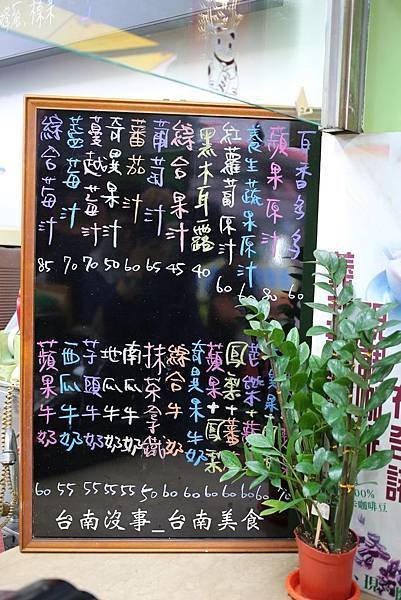 百香多多 60
蘋果原汁 80
養生蔬果原汁
紅蘿蔔原汁 60
黑木耳露 40
綜合果汁 45
葡萄汁 65
蕃茄汁 60
奇異果汁 50
蔓越莓汁 70
藍莓汁 70
綜合莓汁 85
蘋果+鳳梨 60
奇異果牛奶 60
綜合牛奶 60
抹茶拿鐵 50
南瓜牛奶 55
地瓜牛奶 55
芋頭牛奶 55
西瓜牛奶 55
蘋果牛奶 60
台南沒事_台南美食
100%
咖啡豆